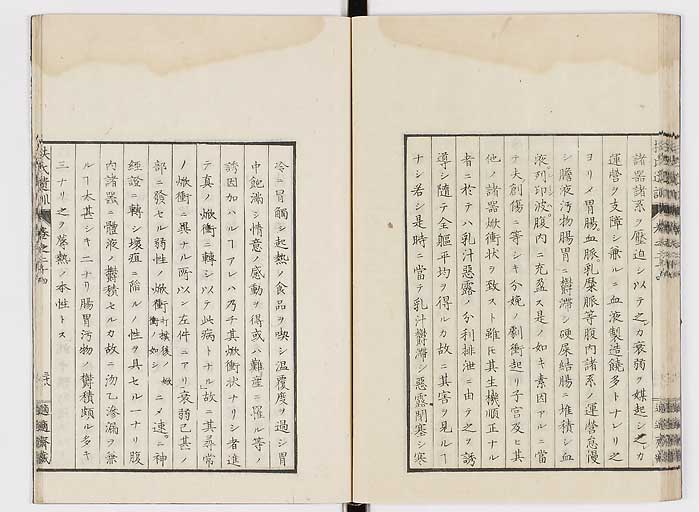 諸器諸系ヲ壓迫シ以テ之カ衰弱ヲ媒起シ之カ
運營ヲ支障シ兼ルニ血液製造饒多トナレリ之
ヨリメ胃腸血脈乳糜脈等腹内諸系ノ運營怠慢
シ膽液汚物腸胃ニ鬱滞シ硬屎結腸ニ堆積シ血
液列印波腹内ニ充盈ス是ノ如キ素因アルニ當
テ夫創傷ニ等シキ分娩ノ劇衝起リ子宮及ヒ其
他ノ諸器焮衝状ヲ致スト雖モ其生機順正ナル
者ニ於テハ乳汁惡露ノ分利排泄ニ由テ之ヲ誘
導シ隨テ全軀平均ヲ得ルカ故ニ其害ヲ見ルヿ
ナシ若シ是時ニ當テ乳汁鬱滞シ惡露閉塞シ寒
冷ニ冒觸シ起熱ノ食品ヲ喫シ温覆度ヲ過シ胃
中飽滿シ情意ノ感動ヲ得或ハ難産ニ罹ル等ノ
誘因加ハルヿアレハ乃チ其焮衝状ナリシ者進
テ真ノ焮衝ニ轉シ以テ此病トナル故ニ其尋常
ノ焮衝ニ異ナル所以ン左件ニアリ衰弱已甚ノ
部ニ發セル弱性ノ焮衝打撲後ノ焮衝ノ如シニメ速ニ神
經證ニ轉シ壊疽ニ陥ルノ性ヲ具セル一ナリ腹
内諸器ニ體液ノ鬱積セルカ故ニ沕乙滲漏ヲ兼
ルヿ太甚シキ二ナリ腸胃汚物ノ鬱積頗ル多キ
三ナリ之ヲ蓐熱ノ本性トス
扶氏遺訓 卷之二十四 適適齋藏